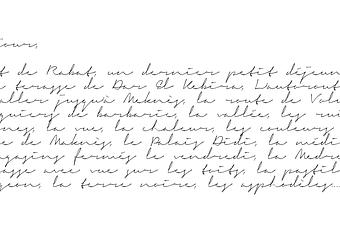 jour,
t de Rabat, un dernier petit déjeun
a terasse de Dar El Kebira, L'autorout
aller jusquà Meknès, la route de Volu
guiers de barbarie, la vallée, les rui
nes, la vue, la chaleur, les couleurs
e de Meknès, le Palais Didi, la médi
agasins fermés le vendredi, la Medre
asse avec vue sur les toits, la pastil
geon, la terre noire, les asphodèles...